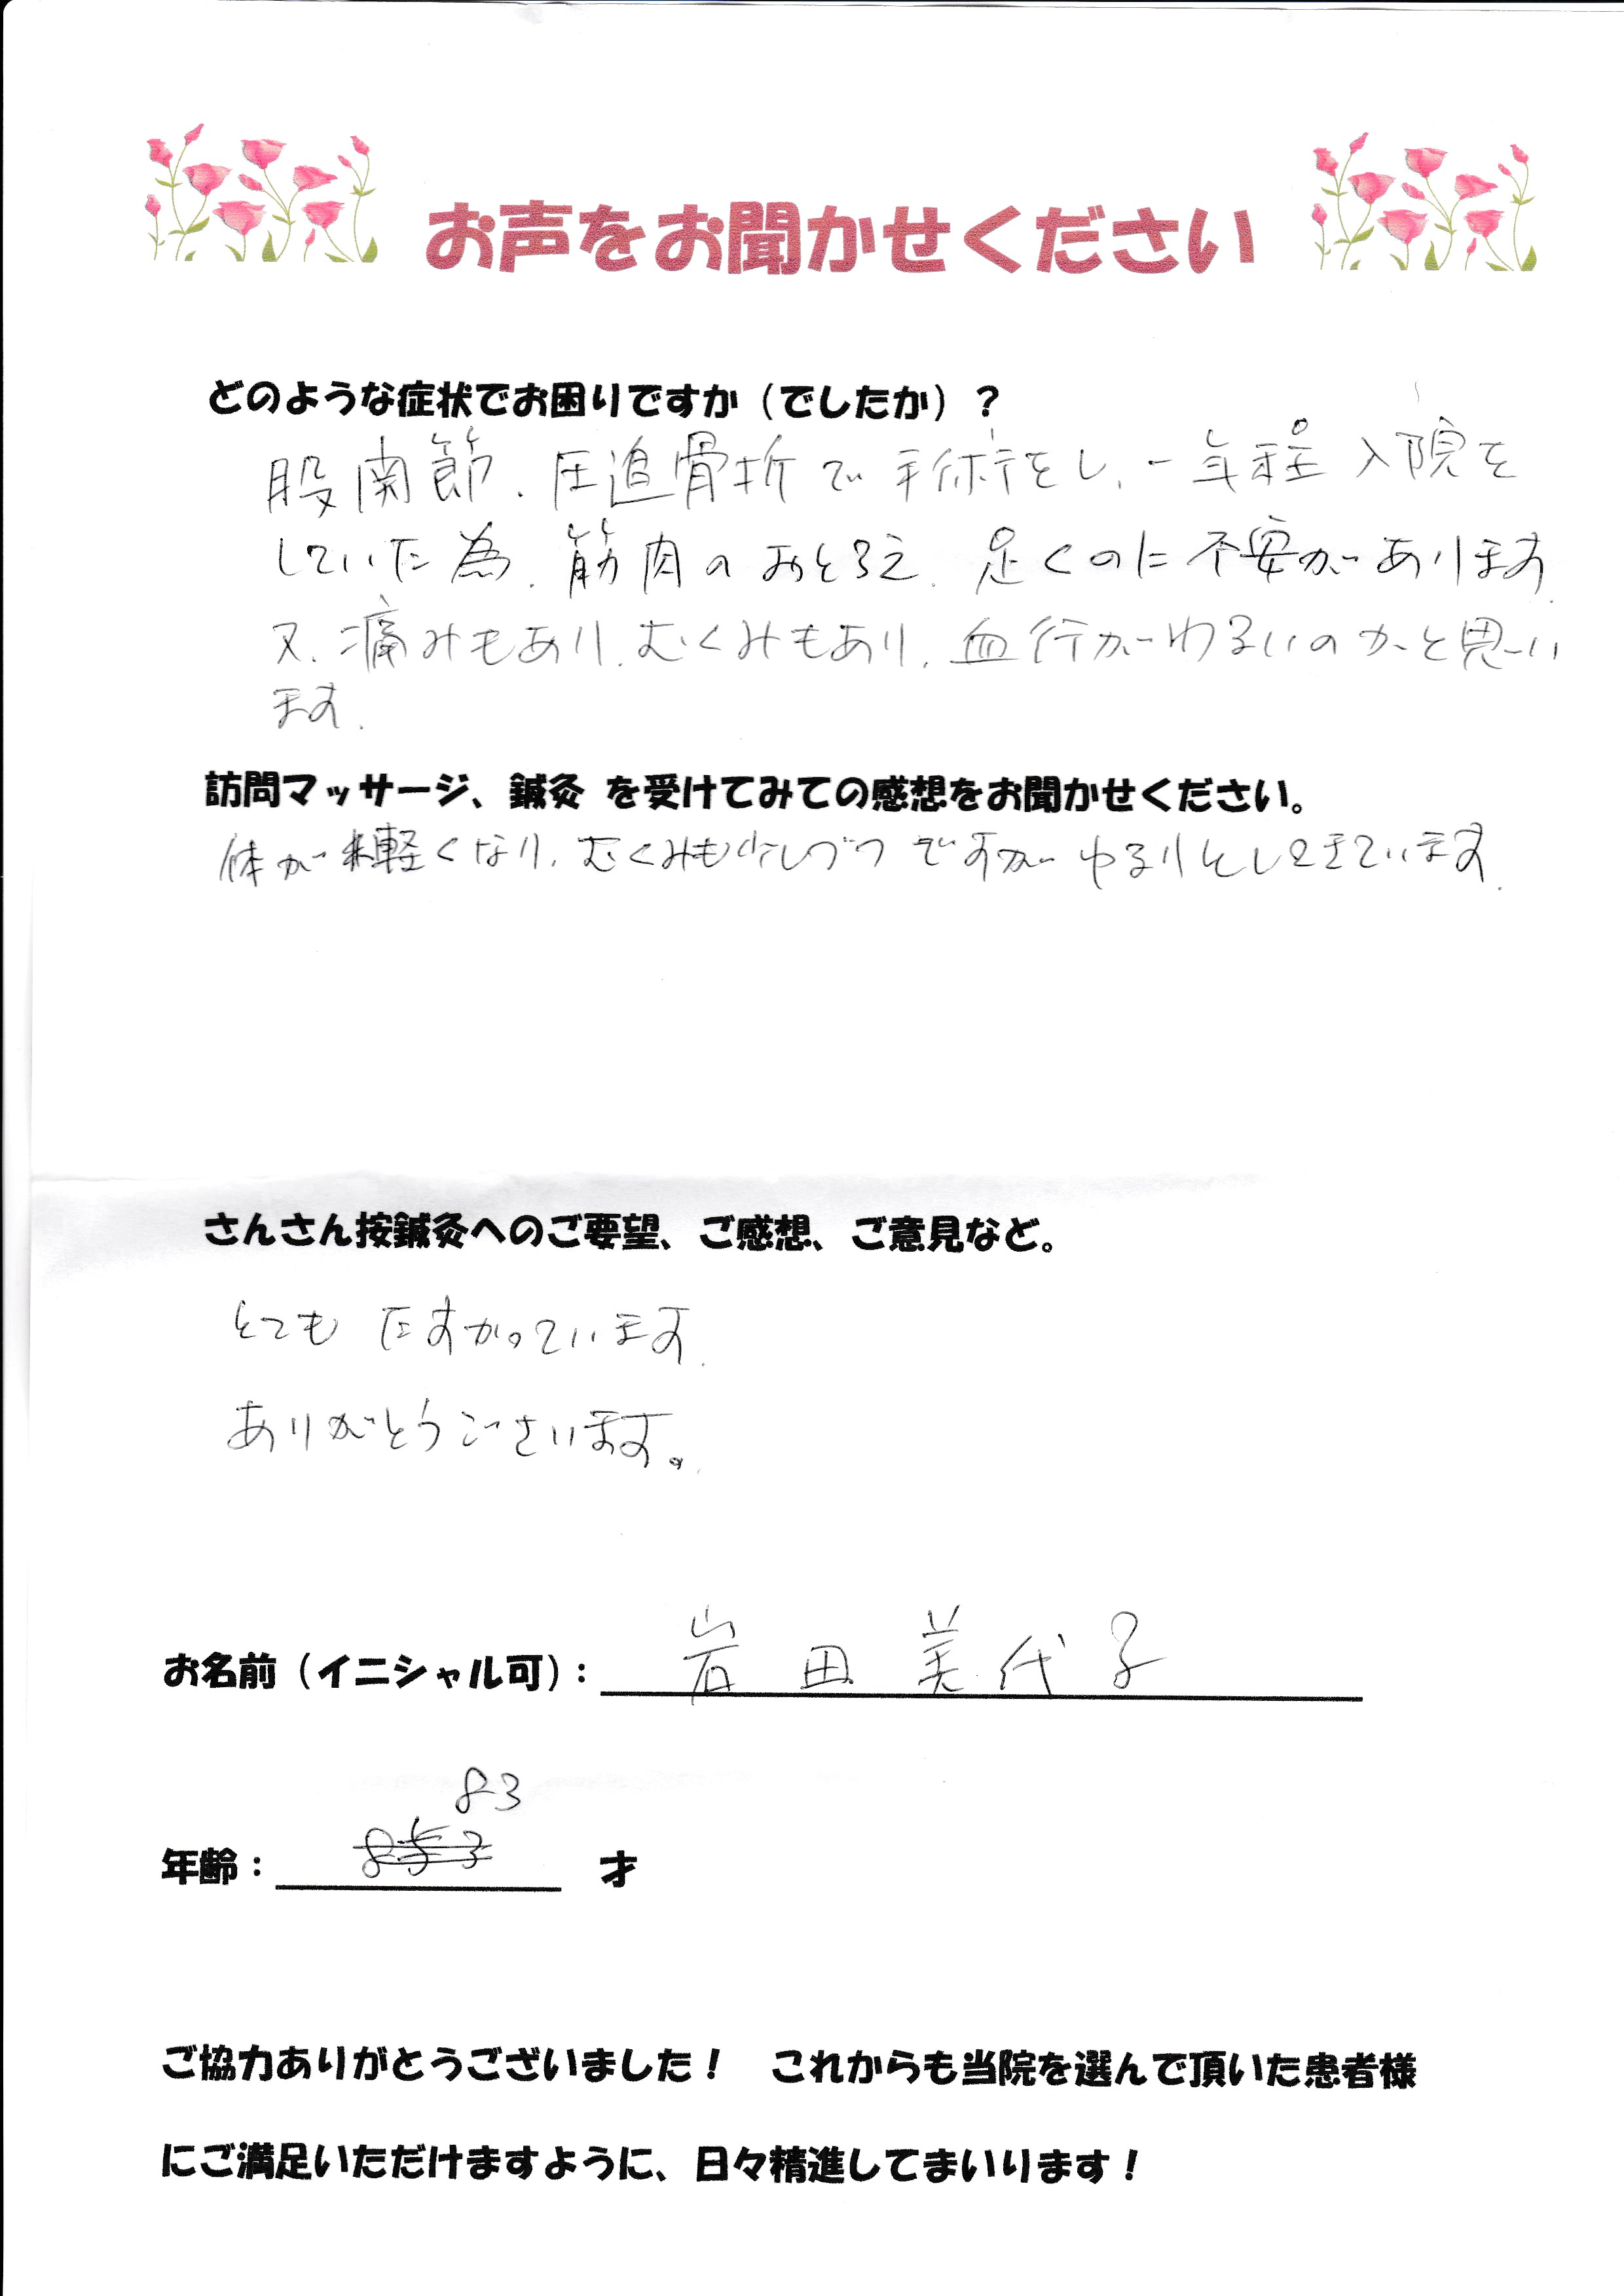 お声をお聞かせください
どのような症状でお困りですか（でしたか）？
股関節、圧迫骨折で手術をし、一年程入院を
していた為、筋肉のおとろえ、足くのに不安があります
又、痛みもあり、むくみもあり、血行がわるいのかと思い
ます。
訪問マッサージ、鍼灸 を受けてみての感想をお聞かせください。
体が軽くなり、むくみも少しづつですがゆるりとしてきています。
さんさん按鍼灸へのご要望、ご感想、ご意見など。
とても たすかっています。
ありがとうございます。
お名前（イニシャル可）：岩田 美代子
83
年齢： 才
ご協力ありがとうございました！ これからも当院を選んで頂いた患者様
にご満足いただけますように、日々精進してまいります！